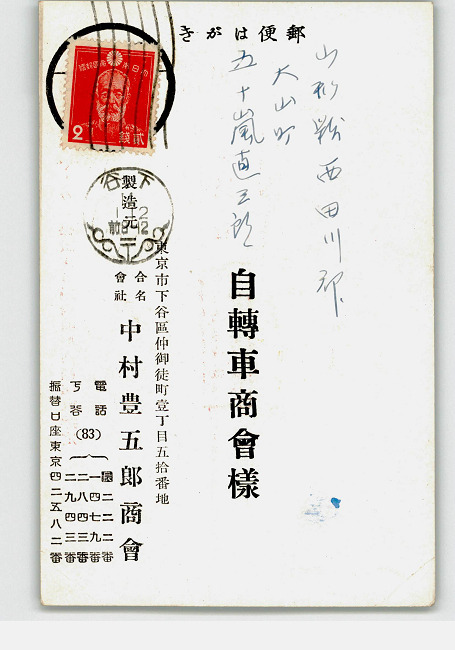 郵便はがき
大日本帝國郵便
2
貳錢
下谷
前8-12
山形縣西田川郡
大山町
五十嵐直三郎
自轉車商會樣
東京市下谷區仲御徒町壹丁目五拾番地
製造元
合名會社 中村豊五郎商會
電話 下谷 (83)
一四七九番
二八四三番
二九四三番
振替口座東京四二五八二番